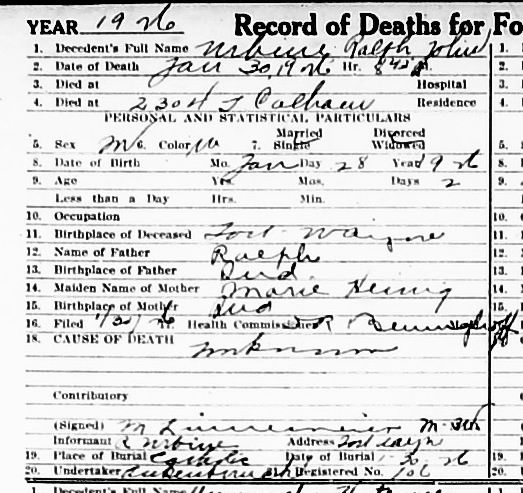 YEAR 1926 Record of Deaths for Fo
1. Decedent's Full Name Urbine Ralph John
2. Date of Death Jan 30, 1926 Hr. 8 M.
3. Died at Hospital
4. Died at 2304 S Calhoun Residence
PERSONAL AND STATISTICAL PARTICULARS
5. Sex M 6. Color W 7. Married Single Divorced Widowed
8. Date of Birth Mo. Jan Day 28 Year 1926
9. Age Yrs. Mos. Days 2
Less than a Day Hrs. Min.
10. Occupation
11. Birthplace of Deceased Fort Wayne
12. Name of Father Ralph
13. Birthplace of Father Ind
14. Maiden Name of Mother Marie
15. Birthplace of Mother Ind
16. Filed 1/30/26 17. Health Commissioner
18. CAUSE OF DEATH unknown
Contributory
(Signed) M
Informant R Urbine Address Fort Wayne
19. Place of Burial Catholic Date of Burial 1-30-26
20. Undertaker Registered No. 106
1. Decedent's Full Name